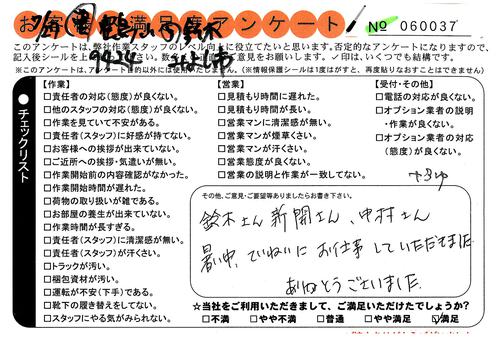 お客様満足度アンケート
№ 060037
このアンケートは、弊社作業スタッフのレベル向上に役立てたいと思います。否定的なアンケートになりますので、
記入後シールを上 ご意見をお願いします。✓印は、いくつでも結構です。
※このアンケートは、アンケート目的以外には使用いたしません。(※情報保護シールは1度がはすと、再度貼りなおすことはできません)
チェックリスト
【作業】
□責任者の対応(態度)が良くない。
□他のスタッフの対応(態度)が良くない。
□作業を見ていて不安がある。
□責任者(スタッフ)に好感が持てない。
□お客様への挨拶が出来ていない。
□ご近所への挨拶・気遣いが無い。
□作業開始前の内容確認がなかった。
□作業開始時間が遅れた。
□荷物の取り扱いが雑である。
□お部屋の養生が出来ていない。
□作業時間が長すぎる。
□責任者(スタッフ)に清潔感が無い。
□責任者(スタッフ)が汗くさい。
□トラックが汚い。
□梱包資材が汚い。
□運転が不安(下手)である。
□靴下の履き替えをしてない。
□スタッフにやる気がみられない。
【営業】
□見積もり時間に遅れた。
□見積もり時間が長い。
□営業マンに清潔感が無い。
□営業マンが煙草くさい。
□営業マンが汗くさい。
□営業態度が良くない。
□営業の説明と作業が一致してない。
【受付・その他】
□電話の対応が良くない。
□オプション業者の説明
・作業が良くない。
□オプション業者の対応
(態度)が良くない。
その他、ご意見・ご要望等ありましたらお書き下さい。
鈴木さん 新開さん、中村さん
暑い中、ていねいに お仕事していただきました
ありがとうございました
☆当社をご利用いただきまして、ご満足いただけたでしょうか?
□不満 □やや不満 □普通 □やや満足 ☑満足